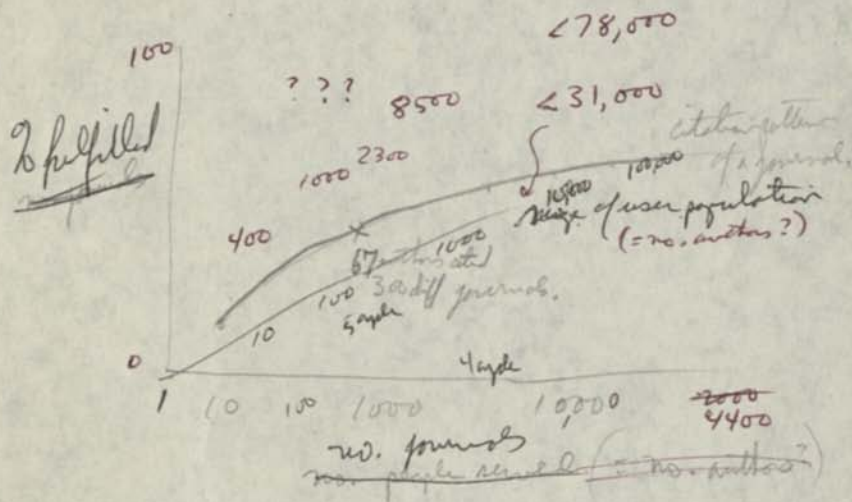 <78,000
100
? ? ?
8500
<31,000
% fulfilled
citation pattern
of a journal.
1000 2300
100,000
10,000
size of user population
(= no. authors?)
400
1000
67 authors cited
300 diff journals.
100
5 cycle
10
0
4 cycle
1 10 100 1000 10,000
2000
4400
no. journals
no. people served (= no. authors?)